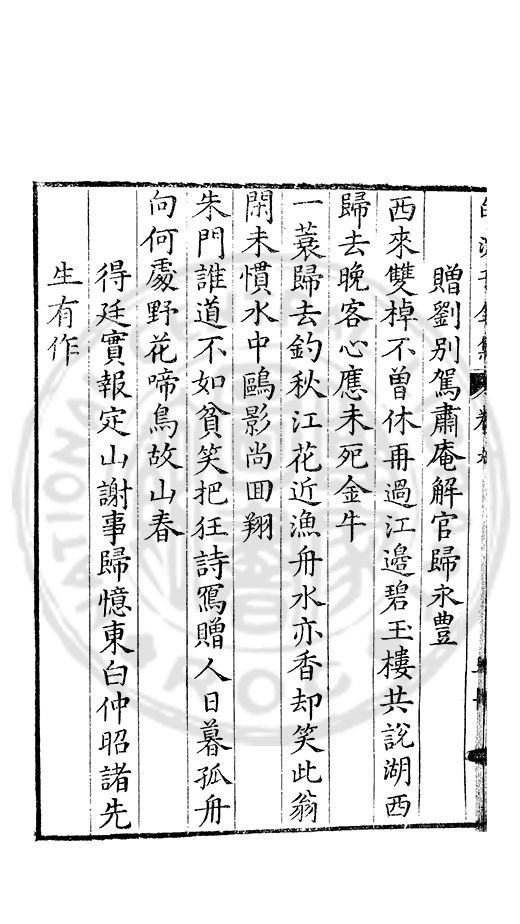 贈劉別駕肅庵解官歸永豊
西來雙棹不曽休再過江邊碧玉樓共説湖西
歸去晚客心應未死金牛
一蓑歸去釣秋江花近漁舟水亦香却笑此翁
閑未慣水中鷗影尚囬翔
朱門誰道不如貧笑把狂詩寫贈人日暮孤舟
向何處野花啼鳥故山春
得廷實報定山謝事歸憶東白仲昭諸先
生有作